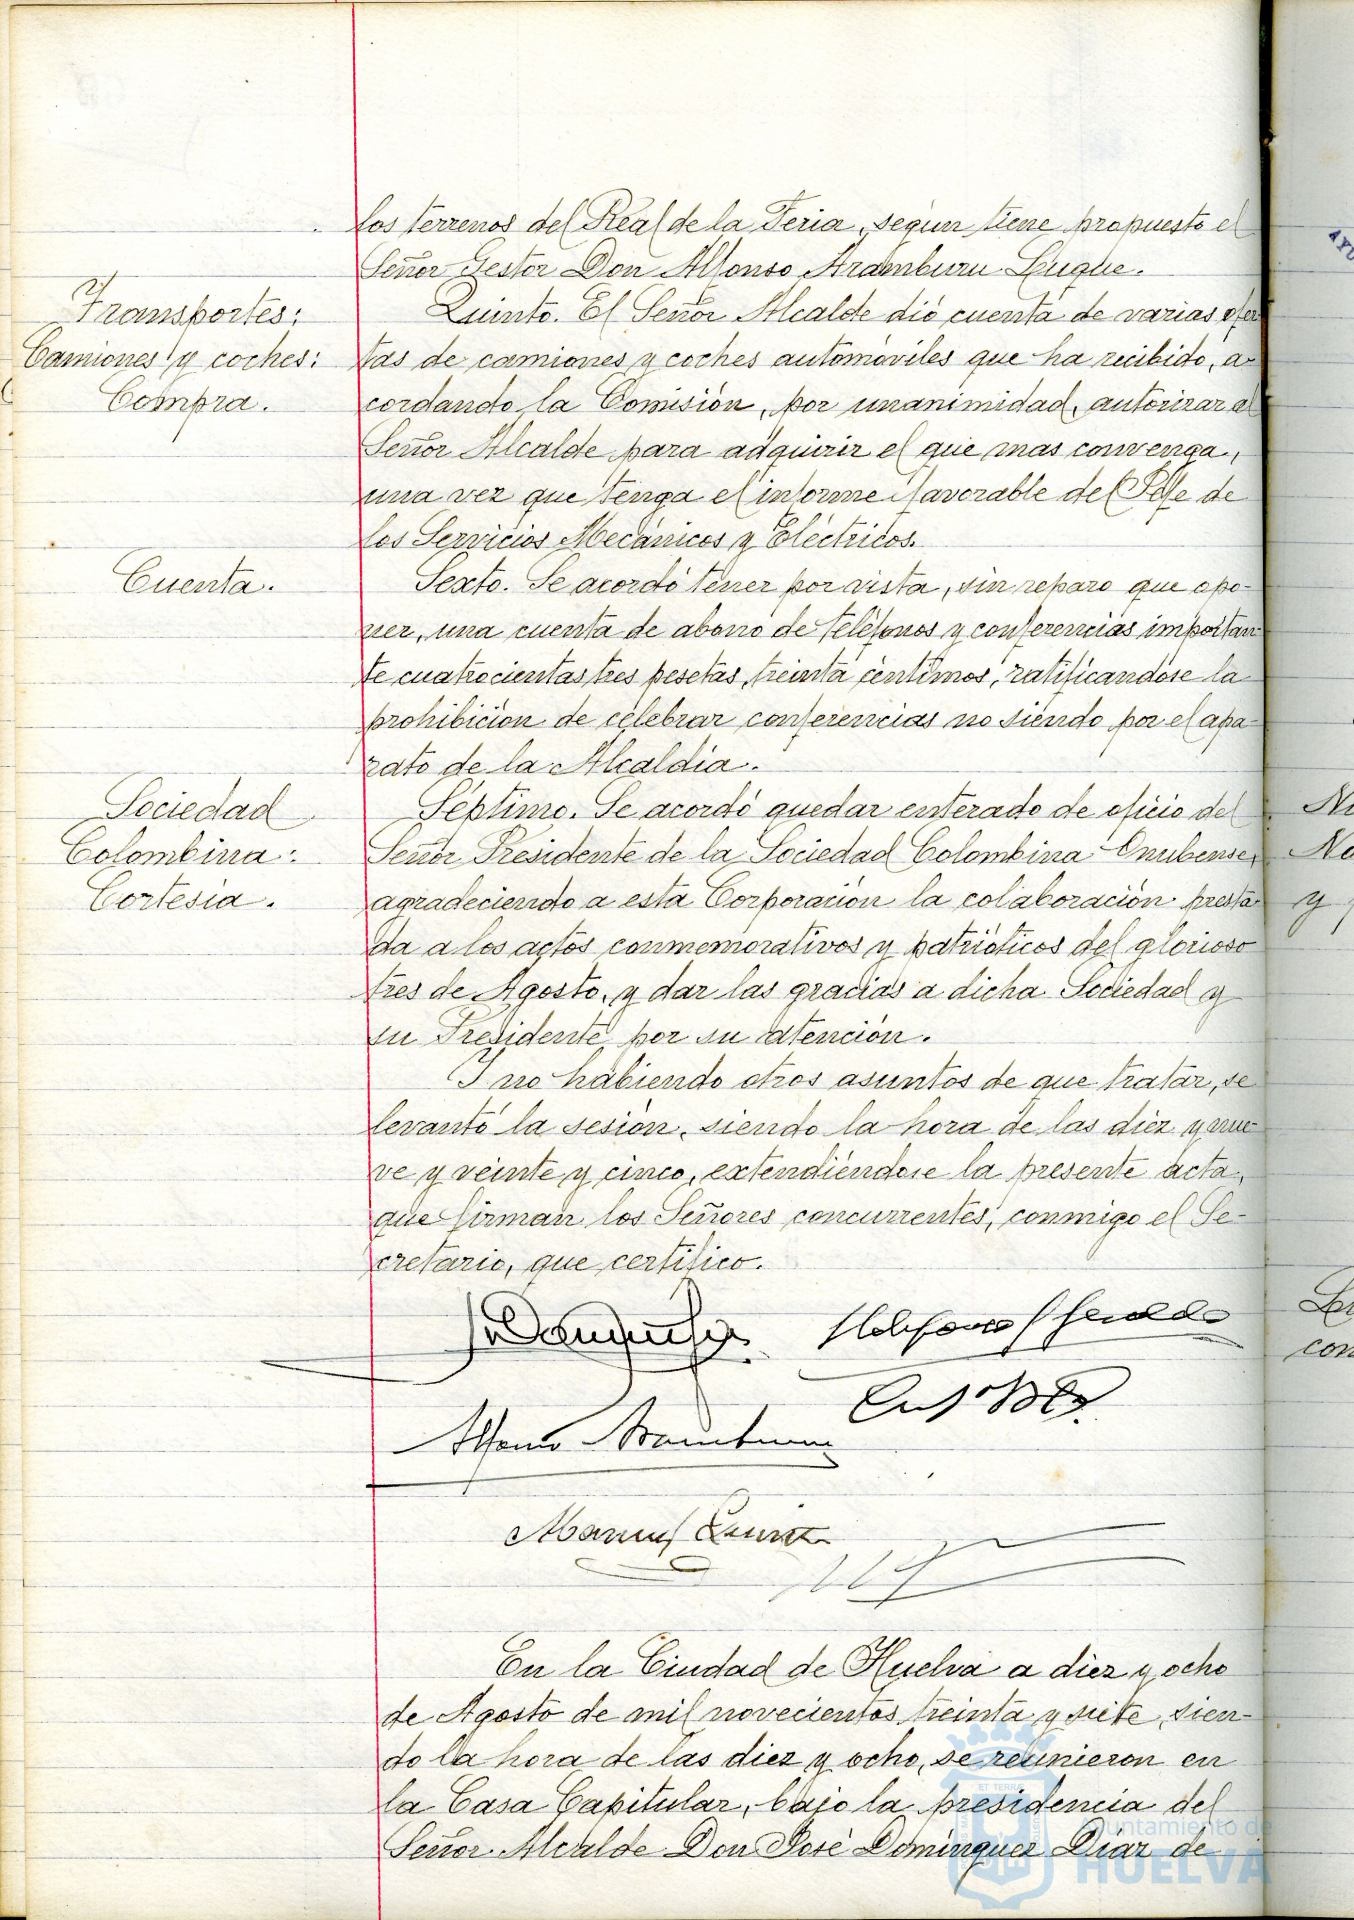 los terrenos del Real de la Feria, según tiene propuesto el
Señor Gestor Don Alfonso Aramburu Luque.
Transportes:
Camiones y coches:
Compra.
Quinto. El Señor Alcalde dió cuenta de varias ofer
tas de camiones y coches automóviles que ha recibido, a-
cordando la Comisión, por unanimidad, autorizar al
Señor Alcalde para adquirir el que mas convenga,
una vez que tenga el informe favorable del Jefe de
los Servicios Mecánicos y Eléctricos.
Cuenta.
Sexto. Se acordó tener por vista, sin reparo que opo-
ner, una cuenta de abono de teléfonos y conferencias importan-
te cuatrocientas tres pesetas, treinta céntimos, ratificándose la
prohibición de celebrar conferencias no siendo por el apa-
rato de la Alcaldía.
Sociedad
Colombina:
Cortesía.
Séptimo. Se acordó quedar enterado de oficio del
Señor Presidente de la Sociedad Colombina Onubense,
agradeciendo a esta Corporación la colaboración presta-
da a los actos conmemorativos y patrióticos del glorioso
tres de Agosto, y dar las gracias a dicha Sociedad y
su Presidente por su atención.
Y no habiendo otros asuntos de que tratar, se
levantó la sesión, siendo la hora de las diez y nue-
ve y veinte y cinco, extendiéndose la presente acta,
que firman los Señores concurrentes, conmigo el Se-
cretario, que certifico.
Alfonso Aramburu
Manuel
En la Ciudad de Huelva a diez y ocho
de Agosto de mil novecientos treinta y siete, sien-
do la hora de las diez y ocho, se reunieron en
la Casa Capitular, bajo la presidencia del
Señor Alcalde Don José Domínguez Díaz de
Ayuntamiento de
HUELVA